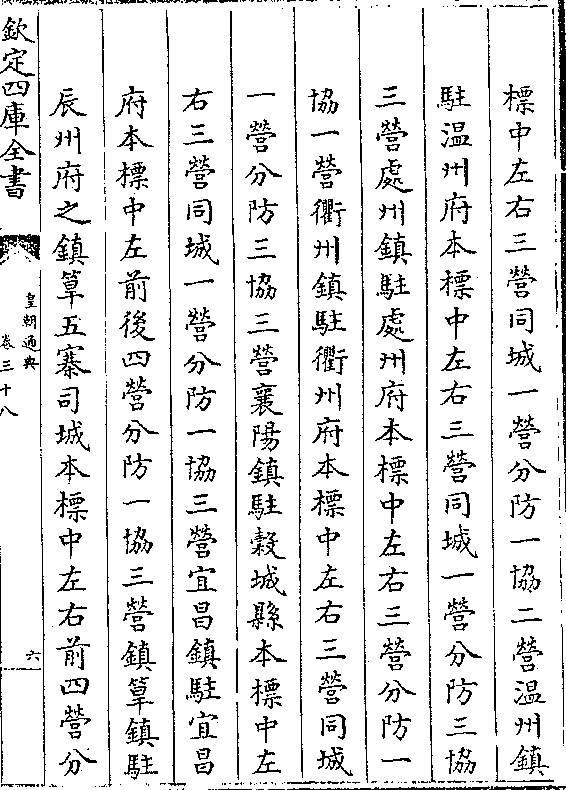 標中左右三營同城一營分防一協二營温州鎮
駐温州府本標中左右三營同城一營分防三協
三營處州鎮駐處州府本標中左右三營分防一
協一營衢州鎮駐衢州府本標中左右三營同城
一營分防三協三營襄陽鎮駐穀城縣本標中左
右三營同城一營分防一協三營宜昌鎮駐宜昌
府本標中左前後四營分防一協三營鎮筸鎮駐
辰州府之鎮筸五寨司城本標中左右前四營分
欽定四庫全書
皇朝通典
卷三十八
六